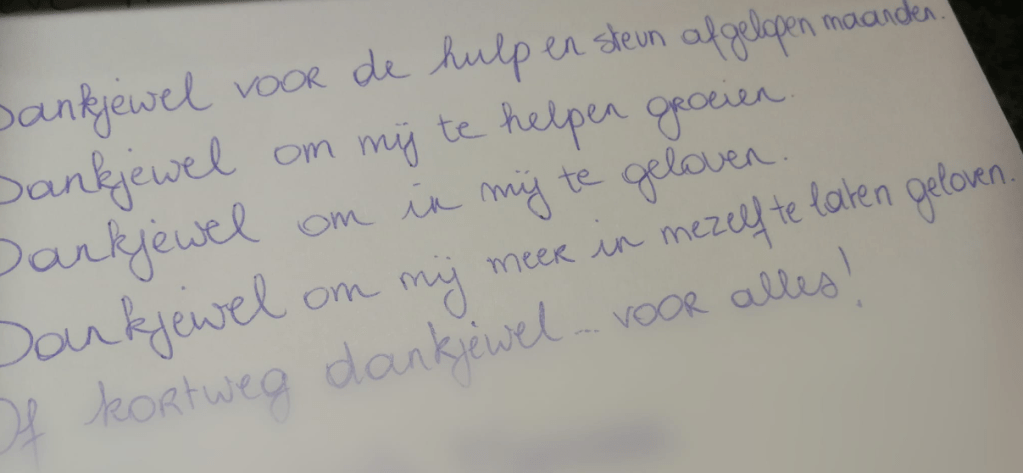 Dankjewel voor de hulp en steun afgelopen maanden.
Dankjewel om mij te helpen groeien.
Dankjewel om in mij te geloven.
Dankjewel om mij meer in mezelf te laten geloven.
Of kortweg dankjewel... voor alles!